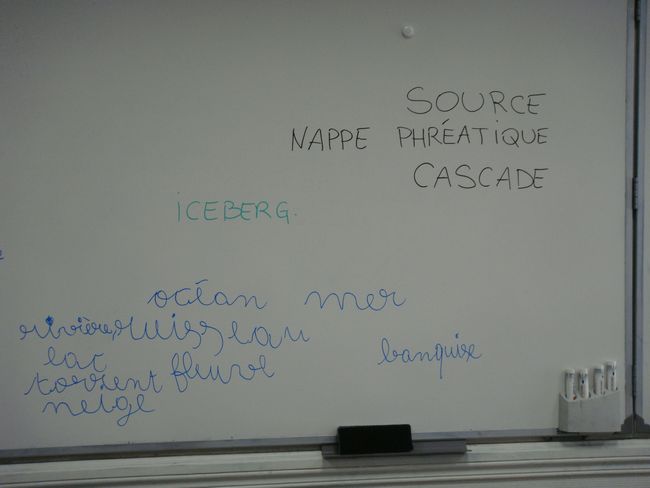 SOURCE
NAPPE PHRÉATIQUE
CASCADE
iCEBERG.
océan mer
rivière, ruisseau
lac
banquise
torrent fleuve
neige